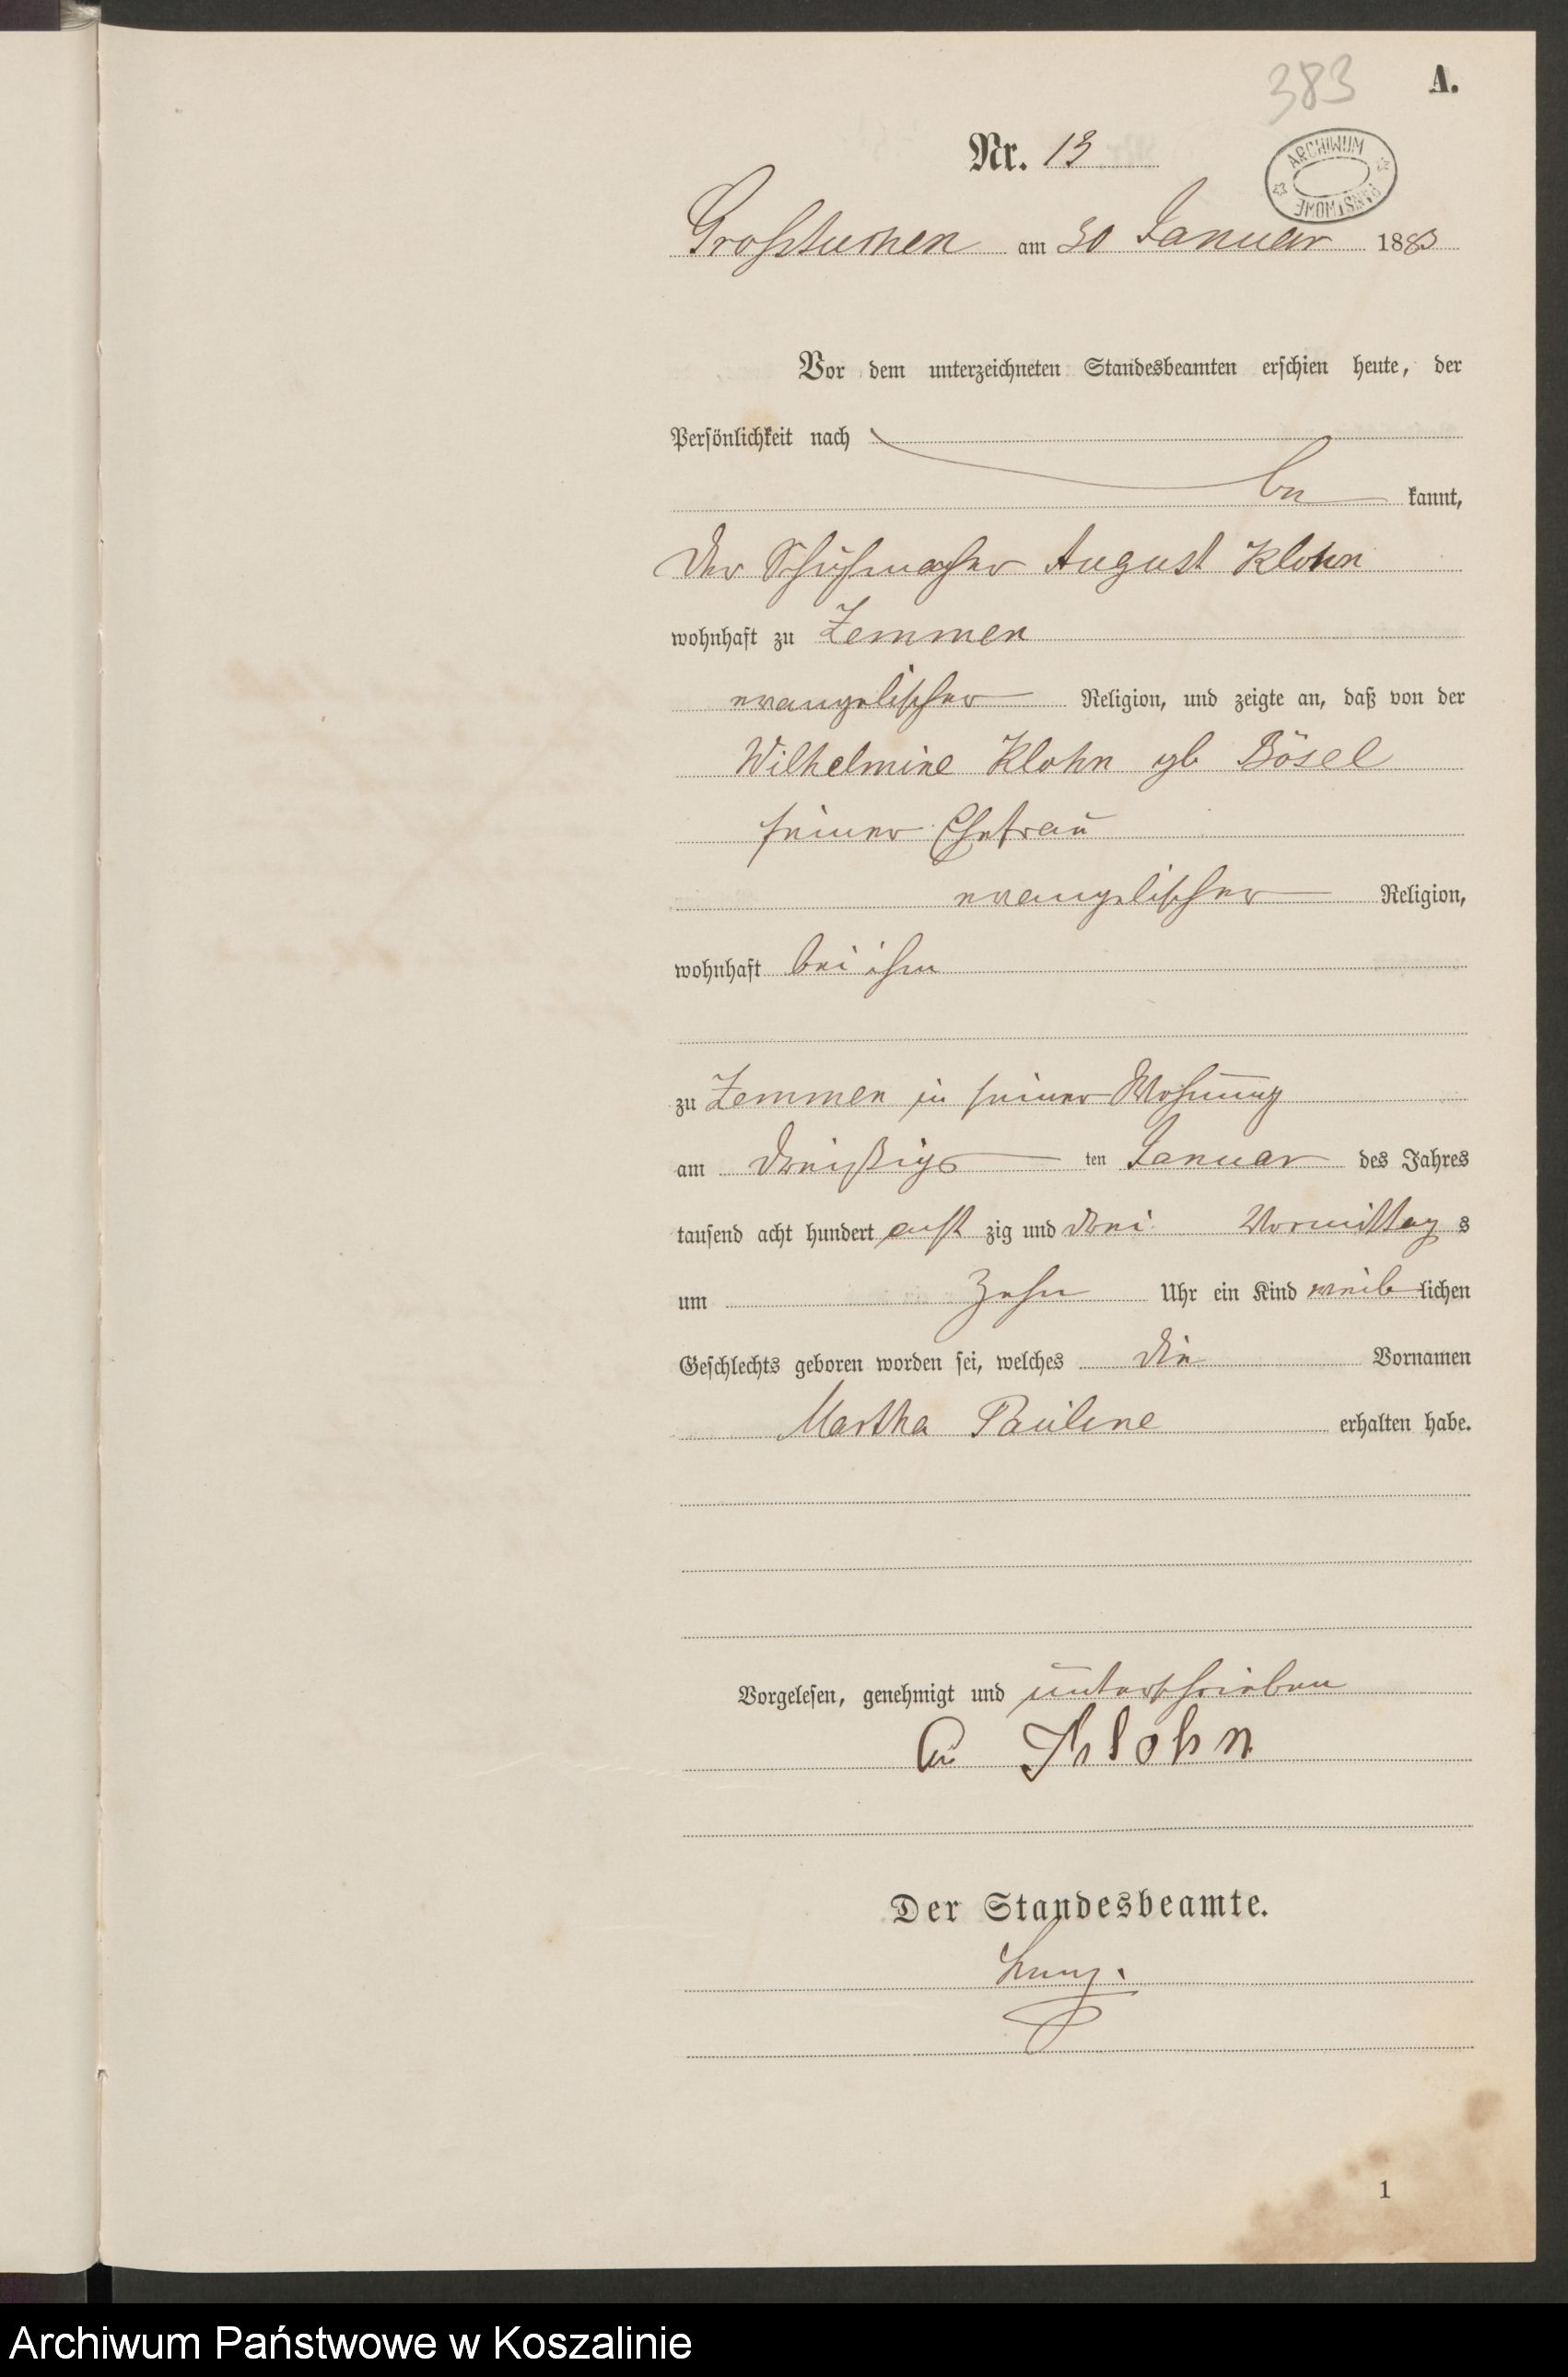 383
A.
Nr. 13
ARCHIWUM PAŃSTWOWE
Großtuchen am 30 Januar 1883
Vor dem unterzeichneten Standesbeamten erschien heute, der
Persönlichkeit nach
be kannt,
der Schuhmacher August Klohn
wohnhaft zu Zemmen
evangelischer Religion, und zeigte an, daß von der
Wilhelmine Klohn gb Bösel
seiner Ehefrau
evangelischer Religion,
wohnhaft bei ihm
zu Zemmen in seiner Wohnung
am dreißigs ten Januar des Jahres
tausend acht hundert acht zig und drei Vormittag s
um zehn Uhr ein Kind weib lichen
Geschlechts geboren worden sei, welches die Vornamen
Martha Pauline erhalten habe.
Vorgelesen, genehmigt und unterschrieben
Au Klohn
Der Standesbeamte.
1
Archiwum Państwowe w Koszalinie